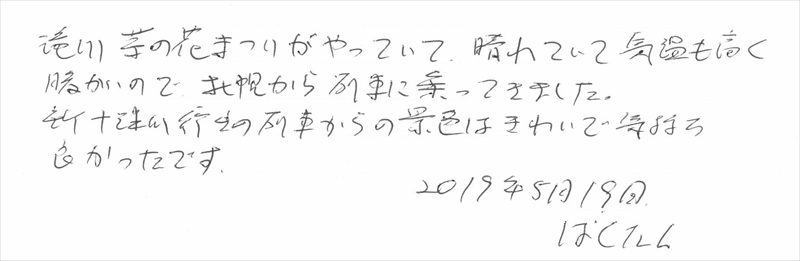 滝川 芽の花まつりがやっていて、晴れていて気温も高く
暖かいので、札幌から列車に乗ってきました。
新十津川行きの列車からの景色はきれいで気持ち
良かったです。
2019年5月19日
ばくたん